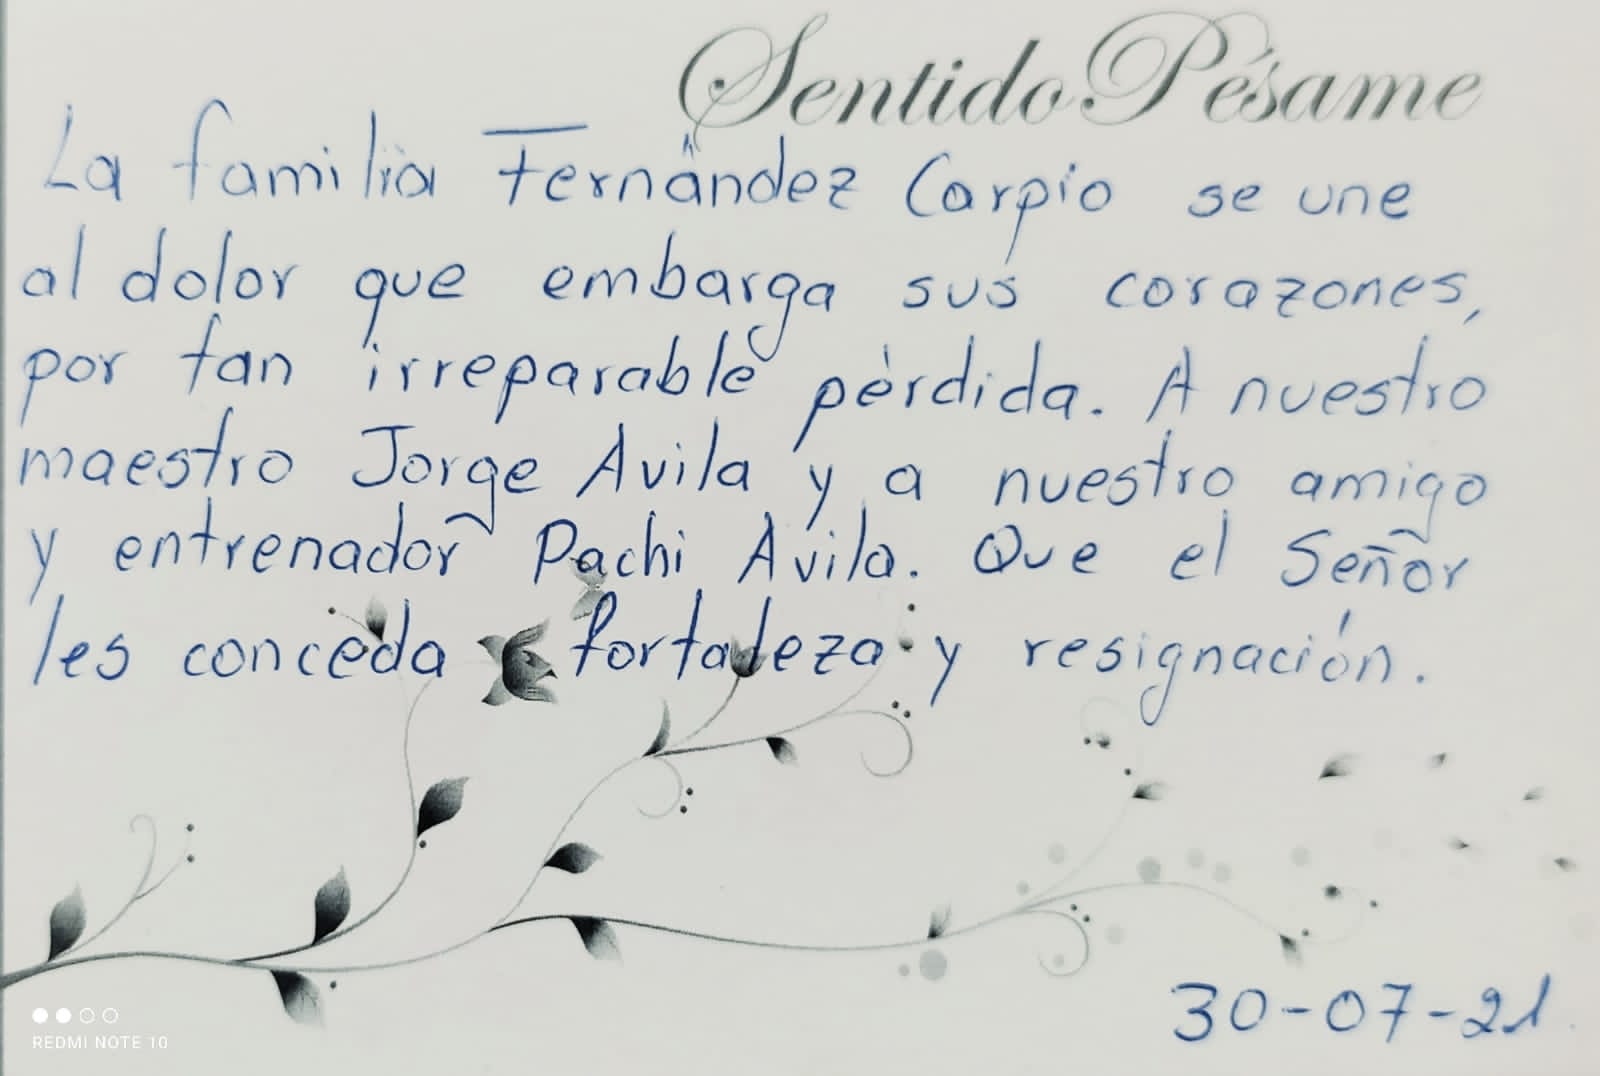 Sentido Pésame
La familia Fernández Carpio se une
al dolor que embarga sus corazones,
por tan irreparable pérdida. A nuestro
maestro Jorge Avila y a nuestro amigo
y entrenador Pachi Avila. Que el Señor
les conceda fortaleza y resignación.
30-07-21
REDMI NOTE 10